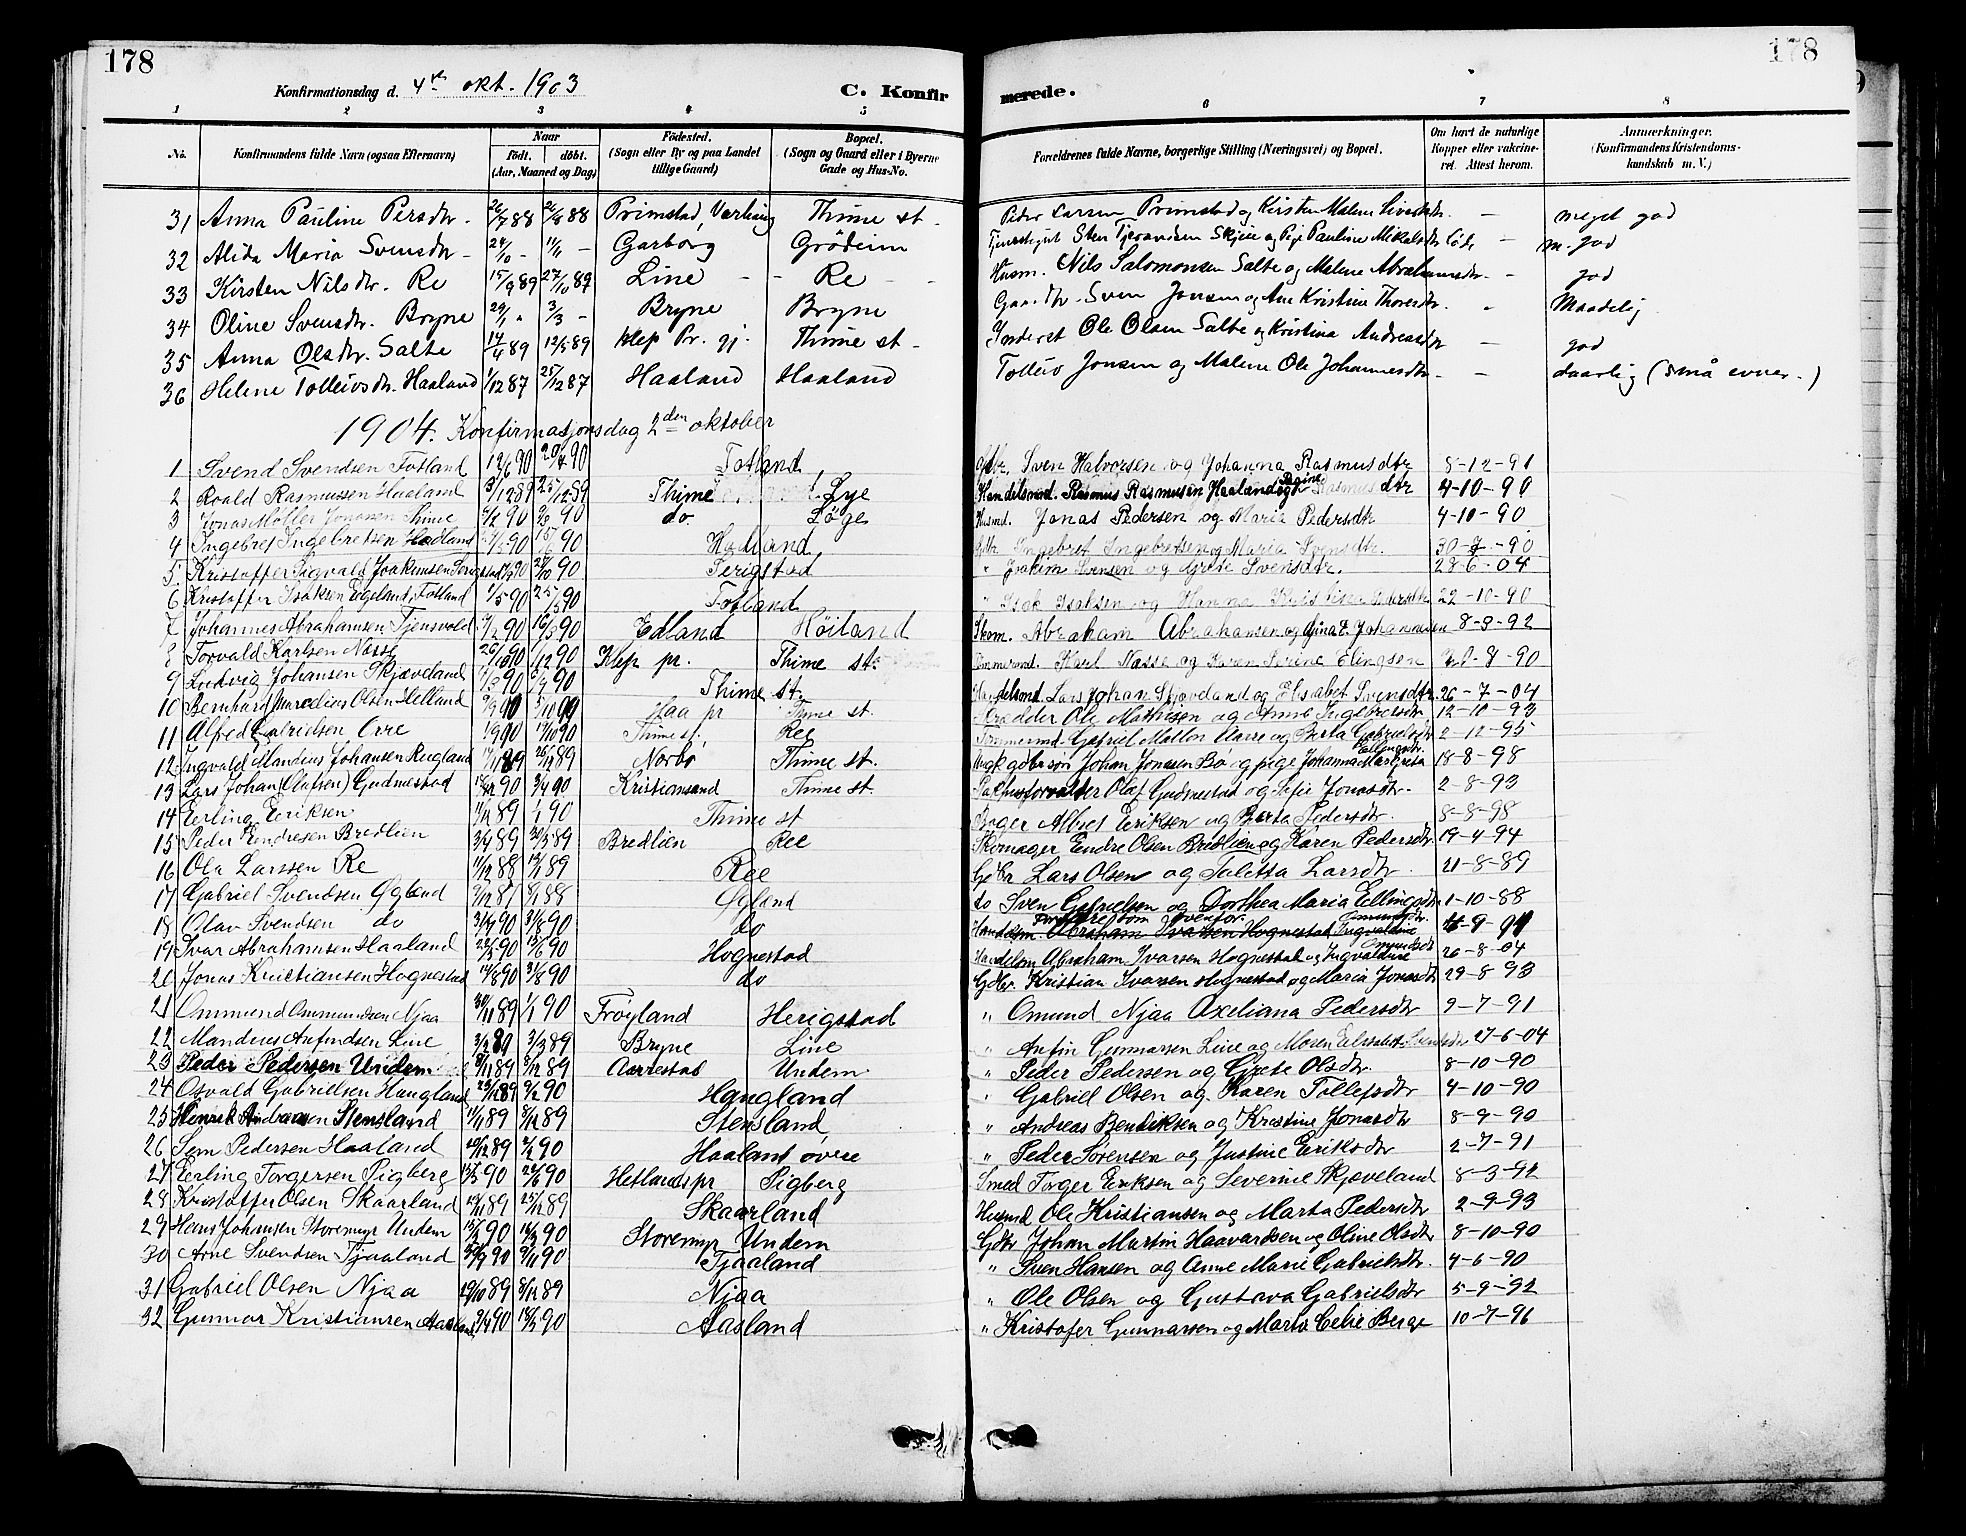 178
178
Konfirmationsdag d. 4de okt. 1903
C. Konfirmerede.
1 2 3 4 5 6 7 8
No. Konfirmandens fulde Navn (ogsaa Efternavn) Naar født. døbt. (Aar, Maaned og Dag) Fødested. (Sogn eller By og paa Landet tillige Gaard) Bopæl. (Sogn og Gaard eller i Byerne Gade og Hus-No. Forældrenes fulde Navne, borgerlige Stilling (Næringsvei) og Bopæl. Om havt de naturlige Kopper eller vakcineret. Attest herom. Anmærkninger. (Konfirmandens Kristendomskundskab m. V.)
31 Anna Pauline Persdtr. 26/7 88 26/8 88 Primstad, Varhaug Thime st. Peder Larsen Primstad og Kirsten Malene Sivertsdtr. — meget god
32 Alida Maria Svensdtr. 24/10 - 11/11 - Garborg Grødeim Sten Tjerandsen Skjeie og Pige Pauline Mikalsdtr. — m. god
33 Kirsten Nilsdtr. Re 15/9 89 27/10 89 Line Re Husm. Nils Salomonsen Salte og Malene Abrahamsdtr. — god
34 Oline Svensdtr. Bryne 29/1 " 3/3 - Bryne Bryne Gaardbr. Sven Jonsen og Ane Kristine Thoresdtr. " Maadelig
35 Anna Olsdtr. Salte 14/4 89 12/5 89 Klep Pr. gj. Thime st. Inderst Ole Olsen Salte og Kristina Andreasdtr — god
36 Helene Tolleivsdtr. Haaland 1/12 87 25/12 87 Haaland Haaland Tolleiv Jonsen og Malene Ole Johannesdtr. — daarlig (små evner.)
1904. Konfirmasjonsdag 2den oktober
1 Svend Svendsen Fotland 12/6 90 20/7 90 Fotland Gdbr. Sven Halvorsen og Johanna Rasmusdtr 8-12-91
2 Roald Rasmussen Haaland 3/12 89 25/12 89 Thime Lye Handelsmd. Rasmus Rasmusen Haaland og Rasmusdtr 4-10-90
3 Jonas Møller Jonasen Thime 90 90 do. Løge Husmd. Jonas Pedersen og Maria Pedersdtr 4-10-90
4 Ingebret Ingebretsen Hadland 90 90 Hadland Gdbr. Ingebret Ingebretsen og Maria Svensdtr. 30-7-90
5 Kristoffer Sigvald Joakimsen Serigstad 90 90 Serigstad " Joakim Svensen og Grete Svensdtr. 28-6-04
6 Kristoffer Isaksen Egeland Fotland 90 90 Fotland " Isak Isaksen og Hanna Kristine Pedersdtr 22-10-90
7 Johannes Abrahamsen Tjensvold 90 90 Edland Høiland Skom. Abraham Abrahamsen og Gina E. Johannesen 8-3-92
8 Torvald Karlsen Næsse 90 90 Klep pr. Thime st. Karl Næsse og Karen Serine Elingsen 20-8-90
9 Ludvig Johansen Skjæveland 90 90 Thime st. Handelsmd Lars Johan Skjæveland og Elisabet Svensdtr. 26-7-04
10 Bernhard Marcelius Olsen Helland 90 90 Haa pr Thime st. Ole Mathisen og Anne Ingebretsdtr. 12-10-93
11 Alfred Gabrielsen 90 90 Thime st. Ree Tømmermd. Gabriel og Berta Gabrielsdtr 2-12-95
12 Ingvald Mandius Johansen Rugland 89 89 Norbø Thime st. Ungk. gdbr.søn Johan Jonssen Bø og pige Johanna Margreta Ellingsdtr. 18-8-98
13 Lars Johan (Olafsen) Gudmestad 90 90 Kristiansand Thime st. Pakhusforvalter Olaf Gudmestad og Sofie Jonasdtr. 2-8-93
14 Eerling Eeriksen 89 90 Thime st Albret Eeriksen og Berta Pedersdtr. 8-8-98
15 Peder Eendresen Bredlien 89 89 Bredlien Ree Skomager Eendre Olsen Bredlien og Karen Pedersdtr 19-4-94
16 Ole Larssen Re 88 89 Ree Gdbr Lars Olsen og Taletta Larsdtr. 21-8-89
17 Gabriel Svendsen Øgland 87 88 Øgland do Sven Gabrielsen og Dorthea Maria Ellingsdtr 1-10-88
18 Olav Svendsen do 90 90 do Foreldre som ovenfor. Handelsm Abraham Ivarsen Hognestad Ingvaldine Omundsdtr.
19 Ivar Abrahamsen Haaland 90 90 Hognestad Handelsm Abraham Ivarsen Hognestad og Ingvaldine Omundsdtr 26-8-04
20 Jonas Kristiansen Hognestad 14/8 90 31/8 90 do Gdbr Kristian Ivarsen Hognestad og Maria Jonasdtr 29-8-93
21 Ommund Ommundsen Njaa 30/11 89 1/1 90 Frøyland Herigstad " Omund Njaa Axeliana Pedersdtr 9-7-91
22 Mandius Anfindsen Line 89 89 Bryne Line " Anfin Gunnarsen Line og Maren Elisabet 27-6-04
23 Peder Pedersen Undem 89 89 Aarrestad Undem. " Peder Pedersen og Grete Olsdtr. 8-10-90
24 Osvald Gabrielsen Haugland 89 90 Haugland " Gabriel Olsen og Karen Tollefsdtr 4-10-90
25 Henrik Andreasen Stensland 89 89 Stensland " Andreas Bendiksen og Kristine Jonasdtr 8-9-90
26 Sem Pedersen Haaland 89 90 Haaland øvre " Peder Sørensen og Justine Eeriksdtr 2-7-91
27 Eerling Torgersen Sigberg 90 90 Hetlands pr Sigberg Smed Torger Eeriksen og Severine Skjæveland 8-3-92
28 Kristoffer Olsen Skaarland 89 25/12 89 Skaarland Husmd Ole Kristiansen og Marta Pedersdtr 2-9-93
29 Hans Johansen Storemyr Undem 90 90 Storemyr Undem Gdbr Johan Martin Haavardsen og Oline Olsdtr 8-10-90
30 Arne Svendsen Tjaaland 90 90 Tjaaland " Sven Hansen og Anne Marie Gabrielsdtr. 4-6-90
31 Gabriel Olsen Njaa 89 89 Njaa " Ole Olsen og Gustava Gabrielsdtr 5-9-92
32 Gunnar Kristiansen Aasland 90 90 Aasland " Kristofer Gunnarsen og Marta Celie Berge 10-7-96